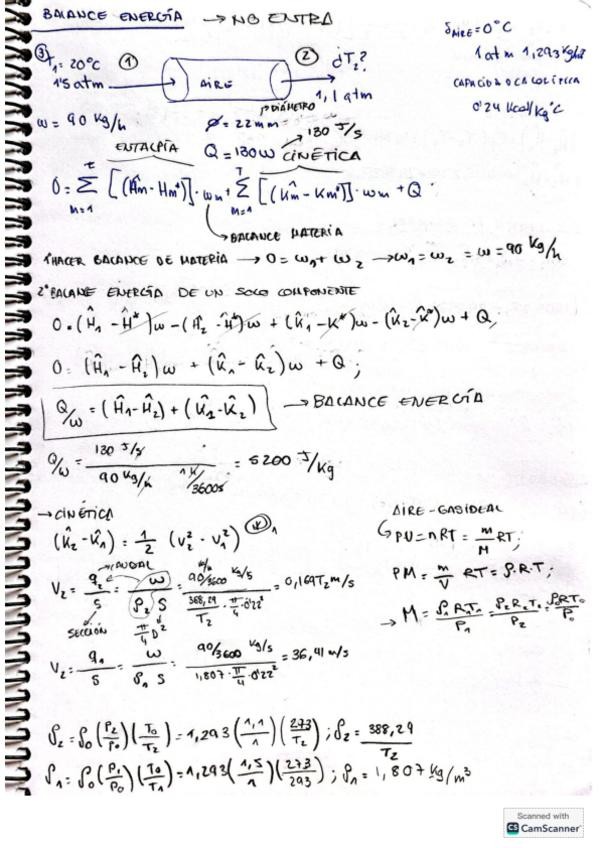 BALANCE ENERGÍA → NO ENTRA
δAIRE = 0°C
1 atm 1,293 kg/m³
CAPACIDAD CALORÍFICA
0'24 Kcal/kg°C
③ T₁ = 20°C ① AIRE ② ¿T₂?
1'5 atm 1,1 atm
DIÁMETRO
ω = 90 kg/h ø = 22 mm 130 J/s
ENTALPÍA Q = 130W CINÉTICA
0 = Σ [(Ĥm - Hm*)]·ωm + Σ [(K̂m - Km*)]·ωm + Q
M=1 M=1
BALANCE MATERIA
1º HACER BALANCE DE MATERIA → 0 = ω₁ + ω₂ → ω₁ = ω₂ = ω = 90 kg/h
2º BALANE ENERGÍA DE UN SOLO COMPONENTE
0 = (Ĥ₁ - Ĥ*)ω - (Ĥ₂ - Ĥ*)ω + (K̂₁ - K*)ω - (K̂₂ - K*)ω + Q;
0 = (Ĥ₁ - Ĥ₂)ω + (K̂₁ - K̂₂)ω + Q;
Q/ω = (Ĥ₁ - Ĥ₂) + (K̂₁ - K̂₂) → BALANCE ENERGÍA
Q/ω = 130 J/s / 90 kg/h 1h/3600s = 5200 J/kg
→ CINÉTICA
(K̂₂ - K̂₁) = 1/2 (v₂² - v₁²)
CAUDAL
V₂ = q₂/S = ω/ρ₂ S = 90/3600 kg/s / 388,29/T₂ · π/4 · 0'22² = 0,169T₂ m/s
SECCIÓN π/4 D²
V₂ = q₁/S = ω/ρ₁ S = 90/3600 kg/s / 1,807 · π/4 · 0'22² = 36,41 m/s
AIRE - GAS IDEAL
PV = nRT = m/M RT;
PM = m/V RT = ρ.R.T;
→ M = ρ₁RT₁/P₁ = ρ₂R₂T₂/P₂ = ρ₀RT₀/P₀
ρ₂ = ρ₀ (P₂/P₀)(T₀/T₂) = 1,293 (1,1/1)(273/T₂); ρ₂ = 388,29/T₂
ρ₁ = ρ₀ (P₁/P₀)(T₀/T₁) = 1,293 (1,5/1)(273/293); ρ₁ = 1,807 kg/m³
Scanned with
CS CamScanner